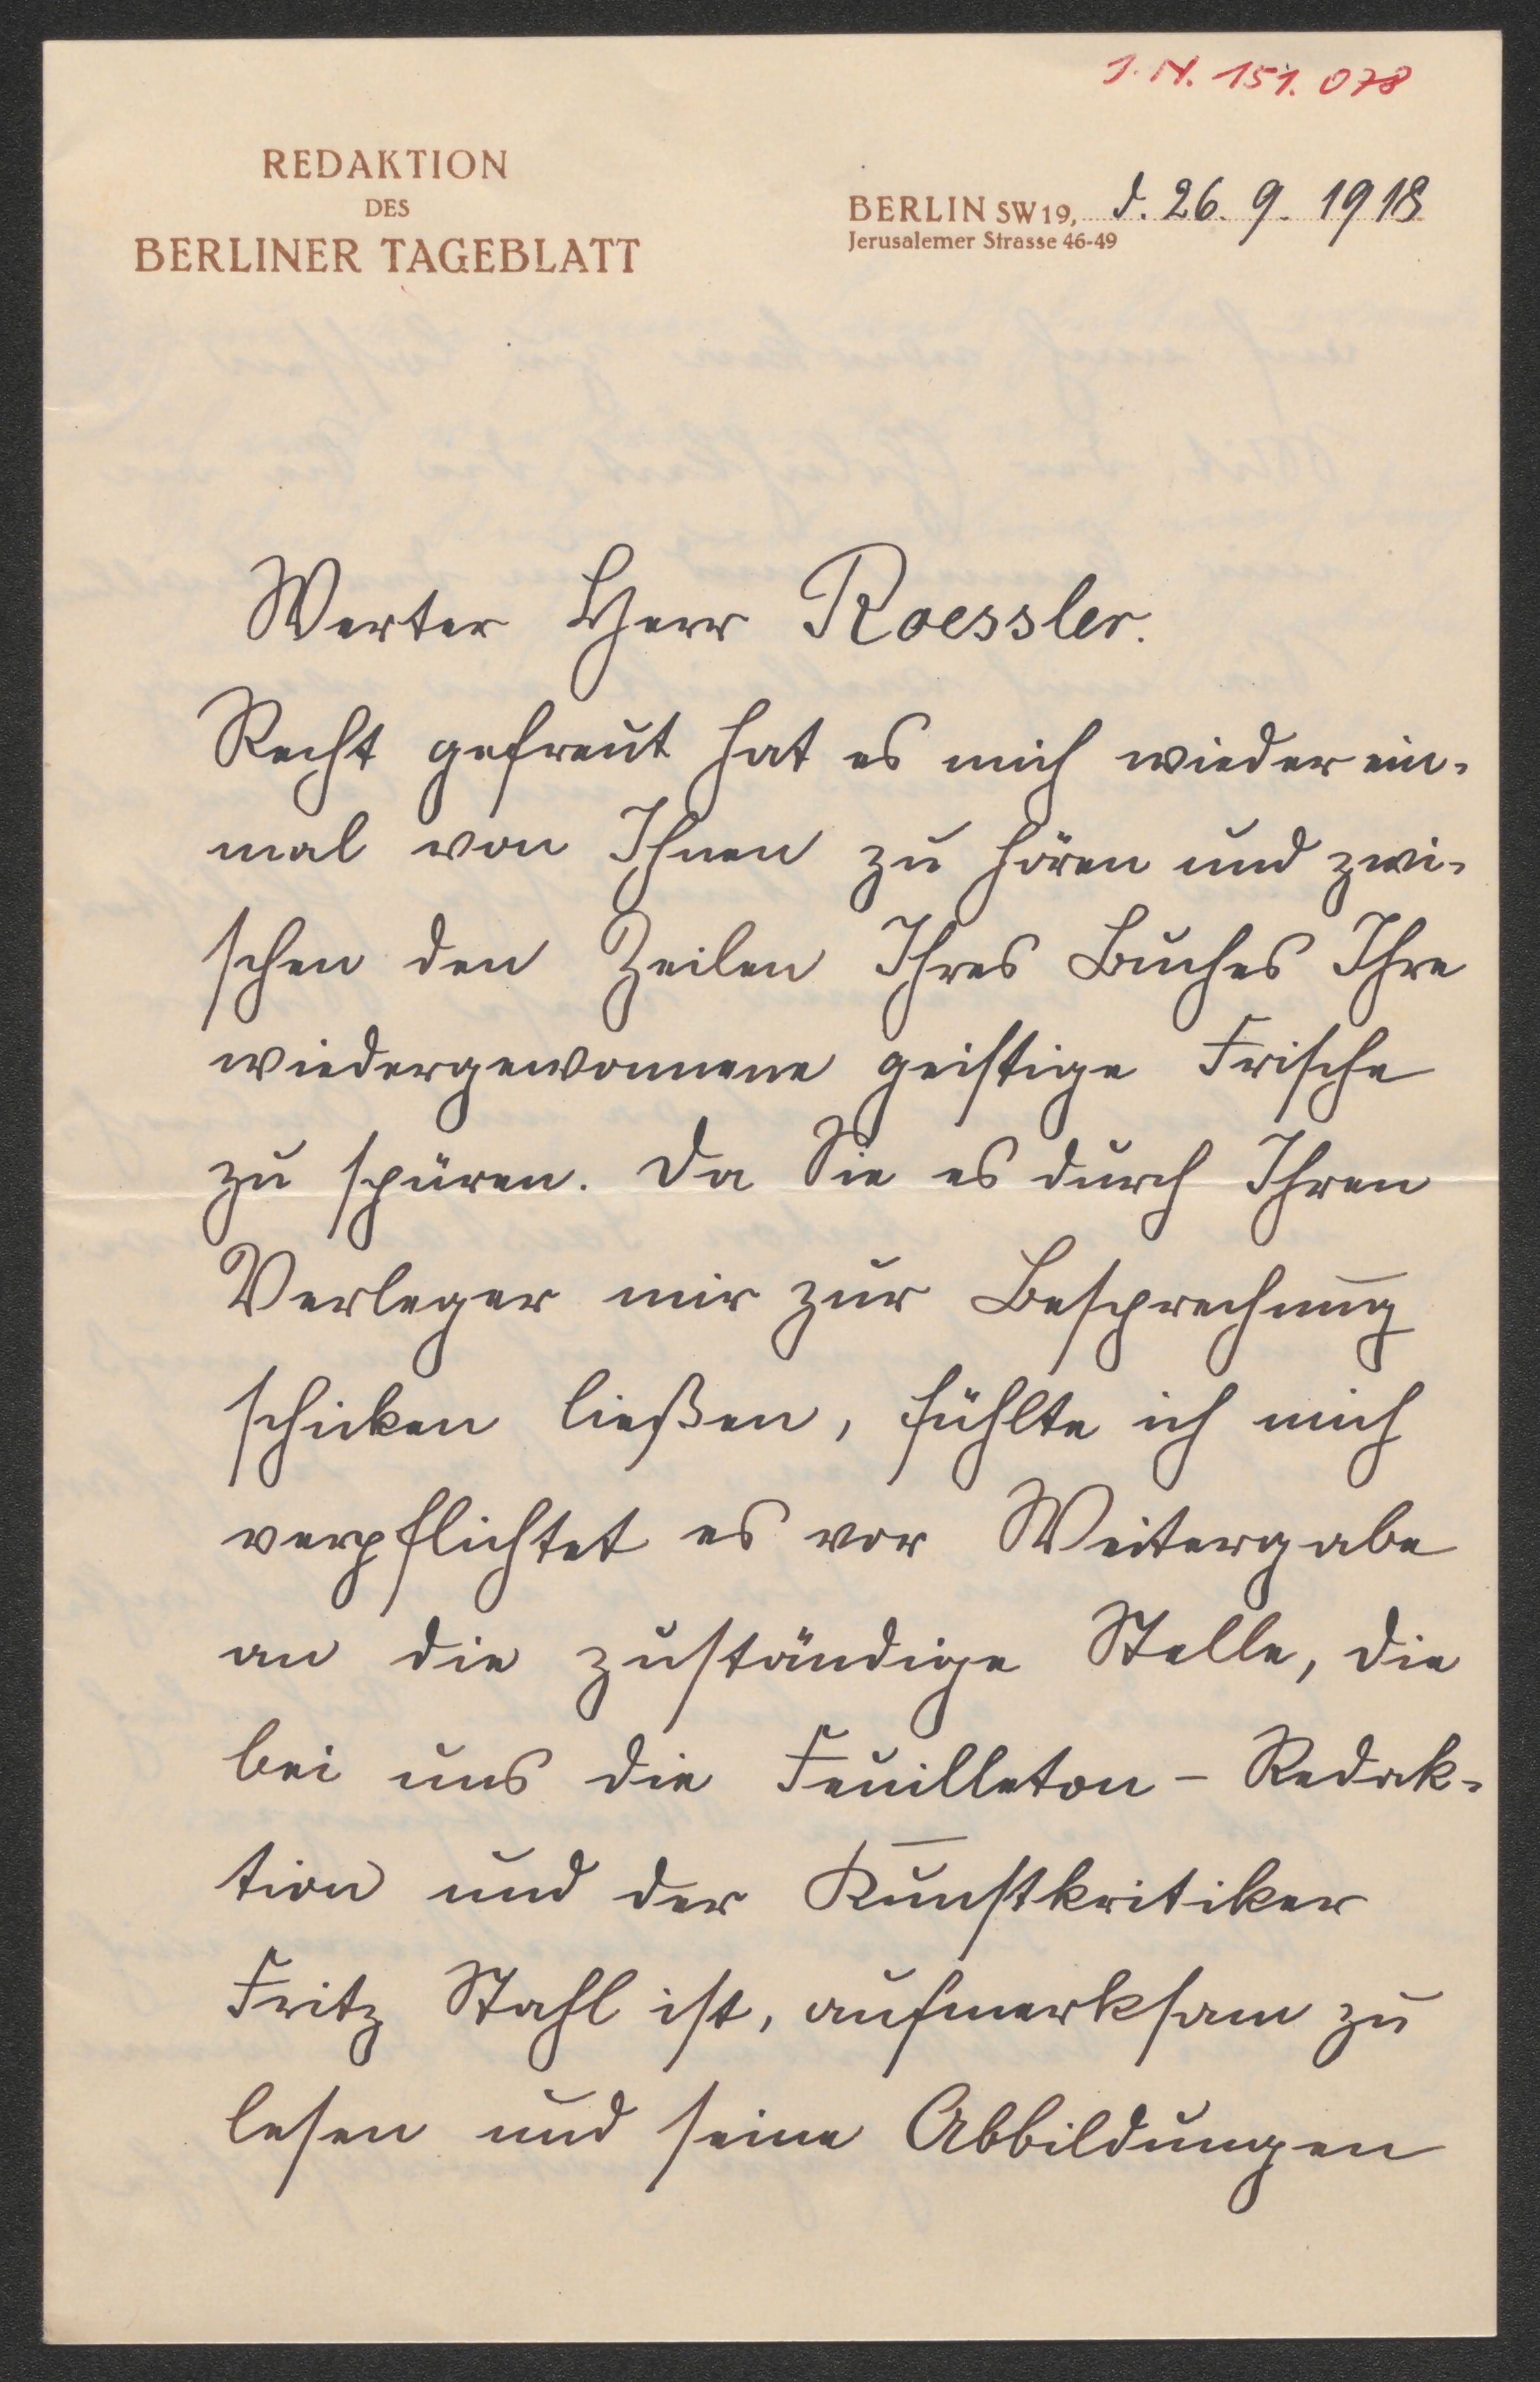 J. N. 151.078
REDAKTION
DES
BERLINER TAGEBLATT
BERLIN SW 19, d. 26. 9. 1918
Jerusalemer Strasse 46-49
Werter Herr Roessler.
Recht gefreut hat es mich wieder ein-
mal von Ihnen zu hören und zwi-
schen den Zeilen Ihres Buches Ihre
wiedergewonnene geistige Frische
zu spüren. Da Sie es durch Ihren
Verleger mir zur Besprechung
schicken ließen, fühlte ich mich
verpflichtet es vor Weitergabe
an die zuständige Stelle, die
bei uns die Feuilleton - Redak-
tion und der Kunstkritiker
Fritz Stahl ist, aufmerksam zu
lesen und seine Abbildungen